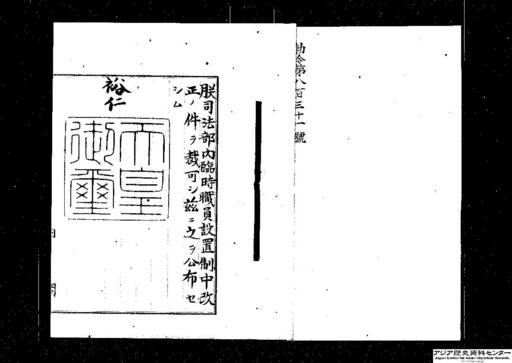 勅令第八百三十一號
朕司法部內臨時職員設置制中改
正ノ件ヲ裁可シ茲ニ之ヲ公布セ
シム
裕仁
天皇
御璽
內
閣
アジア歴史資料センター
Japan Center for Asian Historical Records